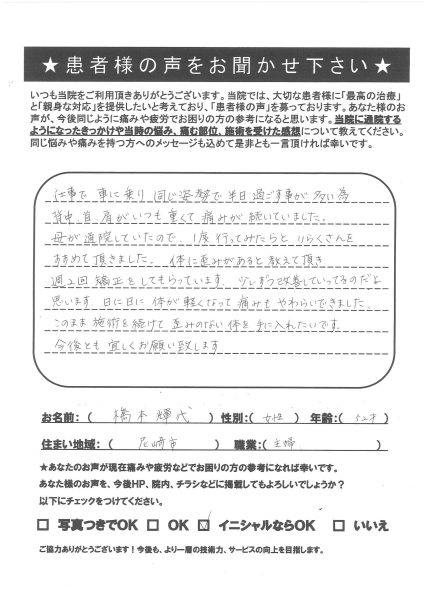 ★患者様の声をお聞かせ下さい★
いつも当院をご利用頂きありがとうございます。当院では、大切な患者様に「最高の治療」
と「親身な対応」を提供したいと考えており、「患者様の声」を募っております。あなた様のお
声が、今後同じように痛みや疲労でお困りの方の参考になると思います。当院に通院する
ようになったきっかけや当時の悩み、痛む部位、施術を受けた感想について教えてください。
同じ悩みや痛みを持つ方へのメッセージも込めて是非とも一言頂ければ幸いです。
仕事で 車に乗り 同じ姿勢で 半日 過ごす事が 多い為
背中、首、肩がいつも 重くて 痛みが 続いていました。
母が通院していたので、1度行ってみたらと りらくさんを
すすめて 頂きました。 体に歪みがあると 教えて 頂き
週2回 矯正をしてもらっています 少しずつ改善していってるのだと
思います 日に日に 体が 軽くなって 痛みも やわらいできました。
このまま 施術を 続けて 歪みのない 体を 手に入れたいです。
今後とも 宜しくお願い致します
お名前:( 橋本 輝代 ) 性別:( 女性 ) 年齢:( 52才 )
住まい地域:( 尼崎市 ) 職業:( 主婦 )
★あなたのお声が現在痛みや疲労などでお困りの方の参考になれば幸いです。
あなた様のお声を、今後HP、院内、チラシなどに掲載してもよろしいでしょうか?
以下にチェックをつけてください。
□ 写真つきでOK □ OK ☑ イニシャルならOK □ いいえ
ご協力ありがとうございます!今後も、より一層の技術力、サービスの向上を目指します。